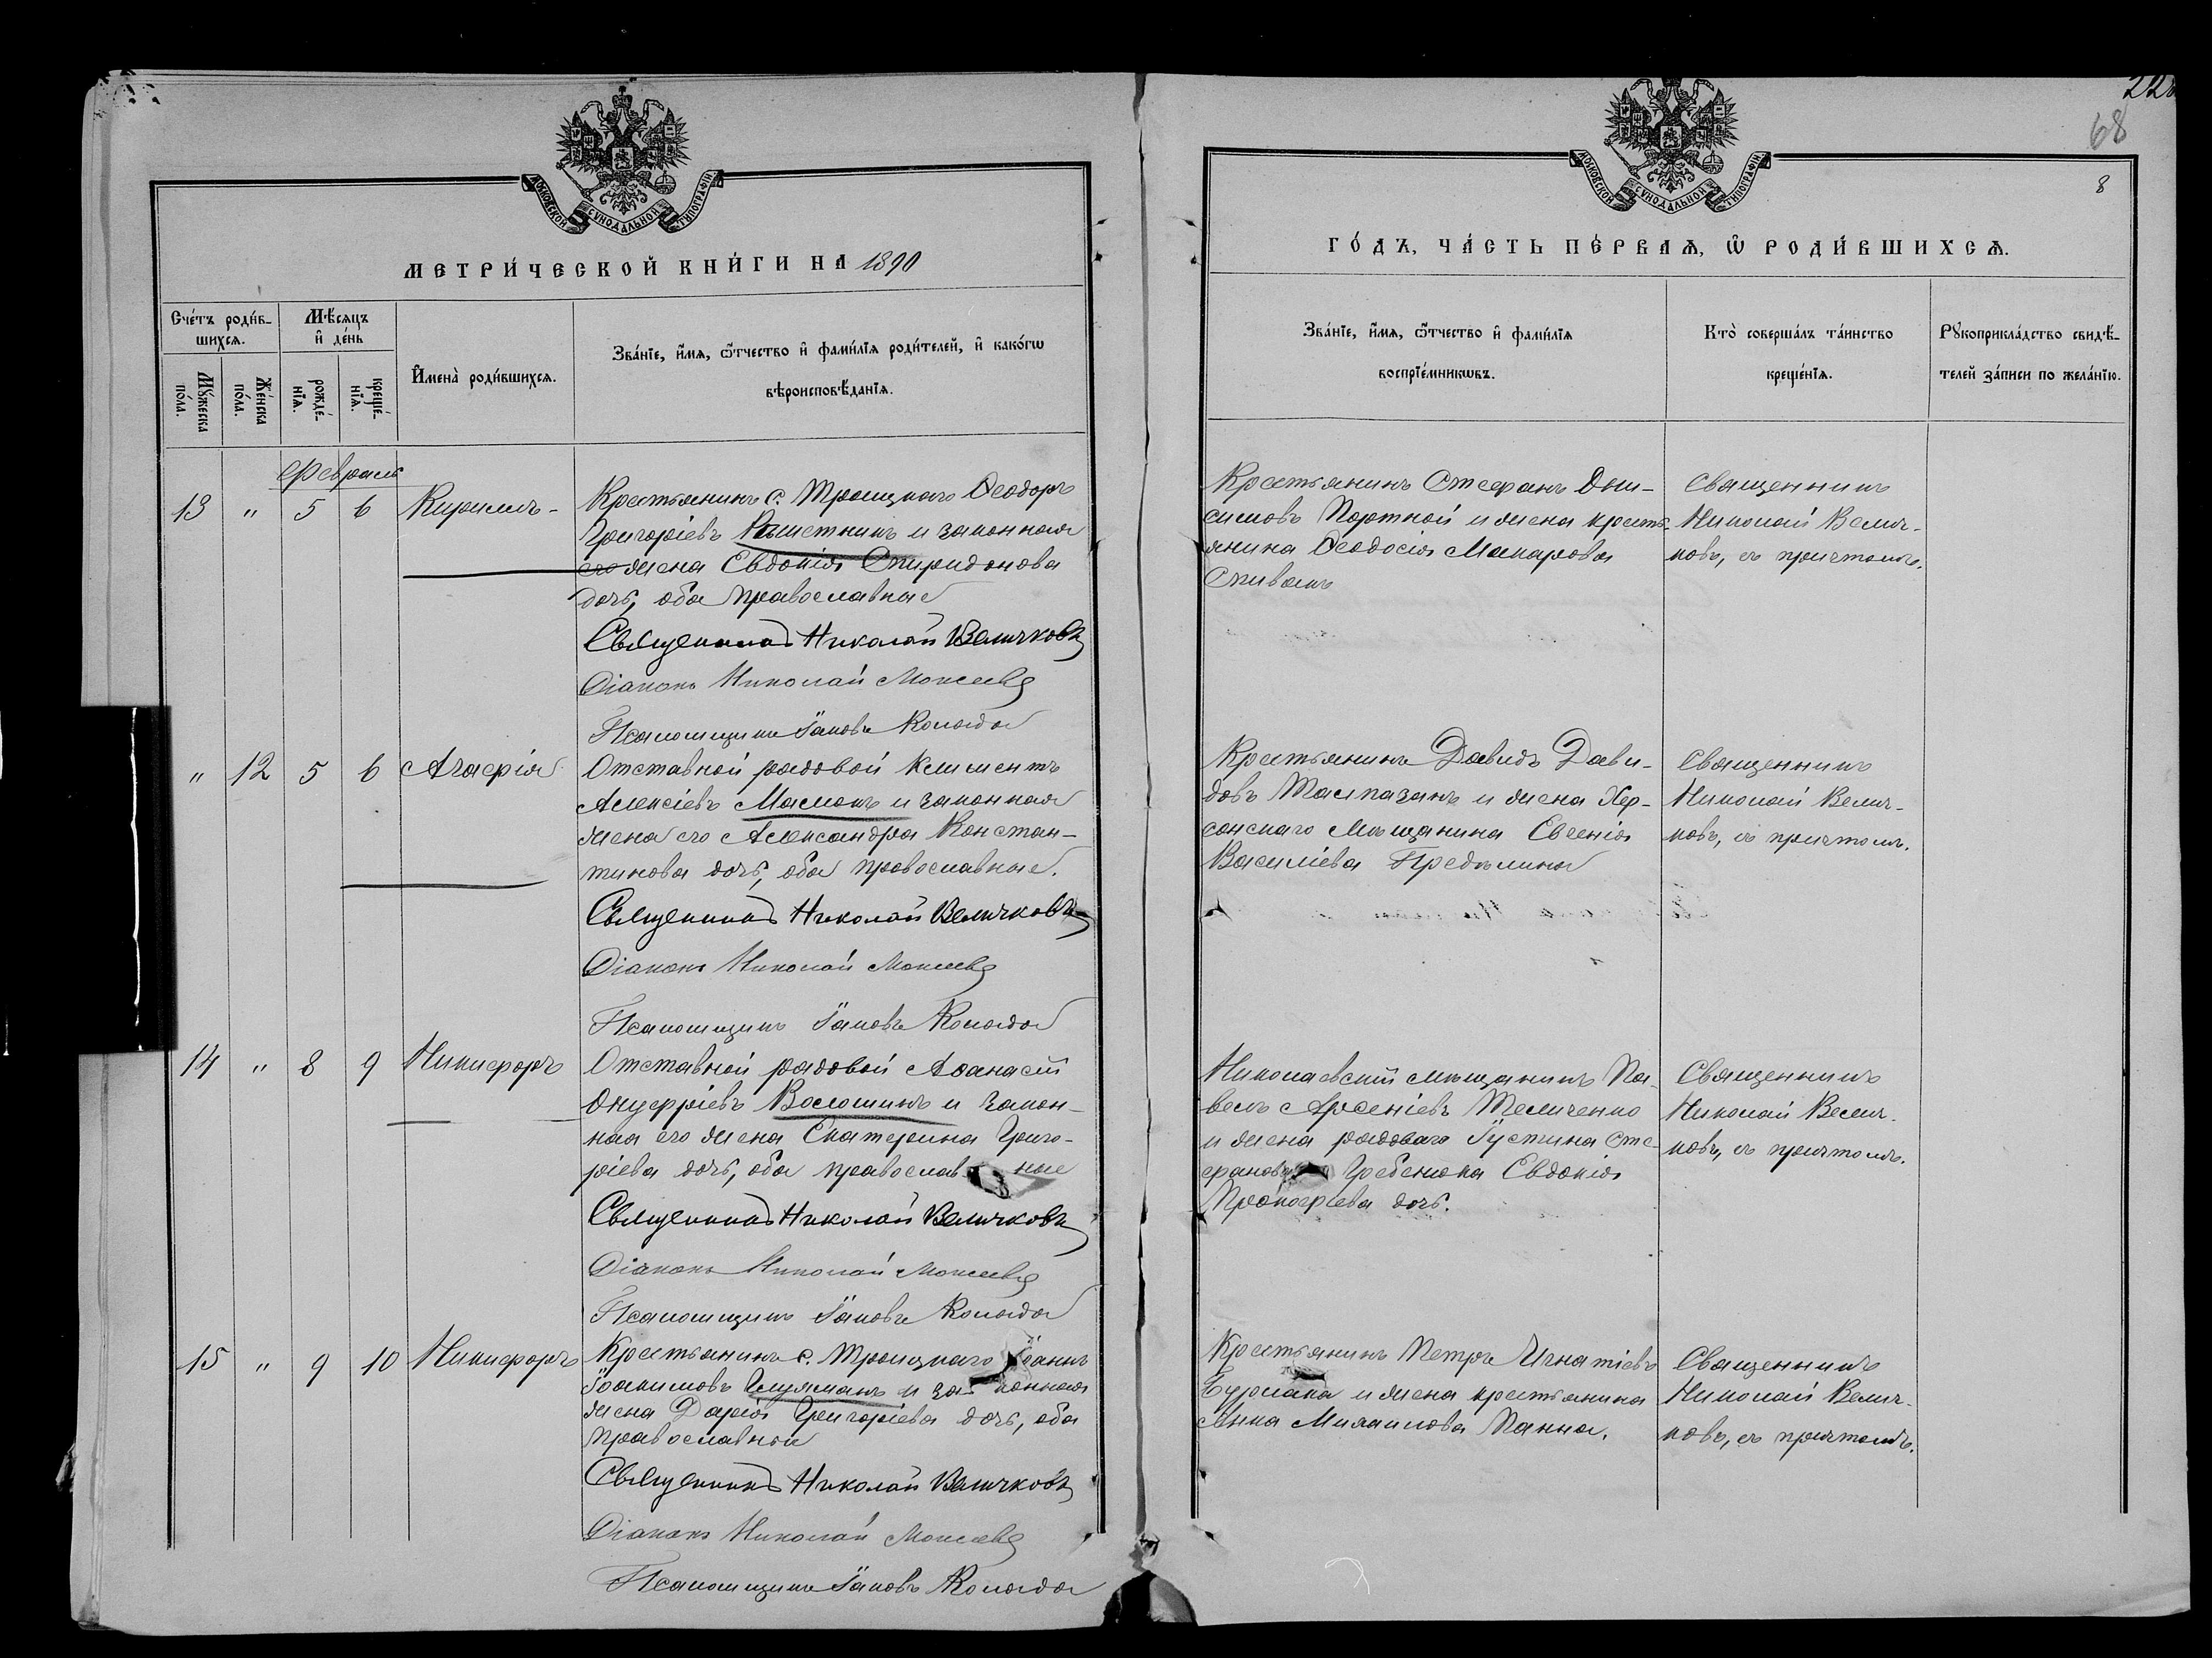 МОСКОВСКОЙ СѴНОДАЛЬНОЙ ТѴПОГРАФІИ
МЕТРИ́ЧЕСКОЙ КНИ́ГИ НА 1890
Сче́тъ роди́в-
шихсѧ.
Мѣ́сѧцъ
и҆ де́нь
Мꙋ́жеска
по́ла.
Же́нска
по́ла.
рожде́-
нїѧ.
креще́-
нїѧ.
И҆мена̀ роди́вшихсѧ.
Зва́нїе, и҆́мѧ, ѻ҆́тчество и҆ фамі́лїѧ роди́телей, и҆ како́гѡ
вѣроисповѣ́данїѧ.
Февраль
13 " 5 6 Кириллъ-
Крестьянинъ с. Троицкаго Ѳеодоръ
Григоріевъ и законная
его жена Евдокія Спиридонова
дочь, оба православные
Священникъ Николай Величковъ
Діаконъ Николай
Псаломщикъ Іаковъ
" 12 5 6 Агафія
Отставной рядовой Климентъ
Алексіевъ Маслокъ и законная
жена его Александра Констан-
тинова дочь, оба православные.
Священникъ Николай Величковъ
Діаконъ Николай
Псаломщикъ Іаковъ
14 " 8 9 Никифоръ
Отставной рядовой Аѳанасій
Онуфріевъ Волошинъ и закон-
ная его жена Екатерина Григо-
ріева дочь, оба православные
Священникъ Николай Величковъ
Діаконъ Николай
Псаломщикъ Іаковъ
15 " 9 10 Никифоръ
Крестьянинъ с. Троицкаго Іоаннъ
Іоакимовъ и законная
жена Дарія Григоріева дочь, оба
православной
Священникъ Николай Величковъ
Діаконъ Николай
Псаломщикъ Іаковъ
68
8
МОСКОВСКОЙ СѴНОДАЛЬНОЙ ТѴПОГРАФІИ
ГО́ДЪ, ЧА́СТЬ ПЕ́РВАѦ, Ѡ҆ РОДИ́ВШИХСѦ.
Зва́нїе, и҆́мѧ, ѻ҆́тчество и҆ фамі́лїѧ
воспрїе́мникѡвъ.
Кто̀ соверша́лъ та́инство
креще́нїѧ.
Рꙋкоприкла́дство свидѣ́-
телей за́писи по жела́нїю.
Крестьянинъ Стефанъ Они-
симовъ Портной и жена кресть-
янина Ѳеодосія Макарова
Спивакъ
Священникъ
Николай Велич-
ковъ, съ причтомъ.
Крестьянинъ Давидъ Дави-
довъ Талпазанъ и жена Хер-
сонскаго мѣщанина Евгенія
Василіева
Священникъ
Николай Велич-
ковъ, съ причтомъ.
Николаевскій мѣщанинъ Па-
велъ Арсеніевъ Теличенко
и жена рядоваго Іустина Сте-
фанова Гребенюка Евдокія
Прокофіева дочь.
Священникъ
Николай Велич-
ковъ, съ причтомъ.
Крестьянинъ Петръ Игнатіевъ
Бурлака и жена крестьянина
Анна Михаилова Панна.
Священникъ
Николай Велич-
ковъ, съ причтомъ.